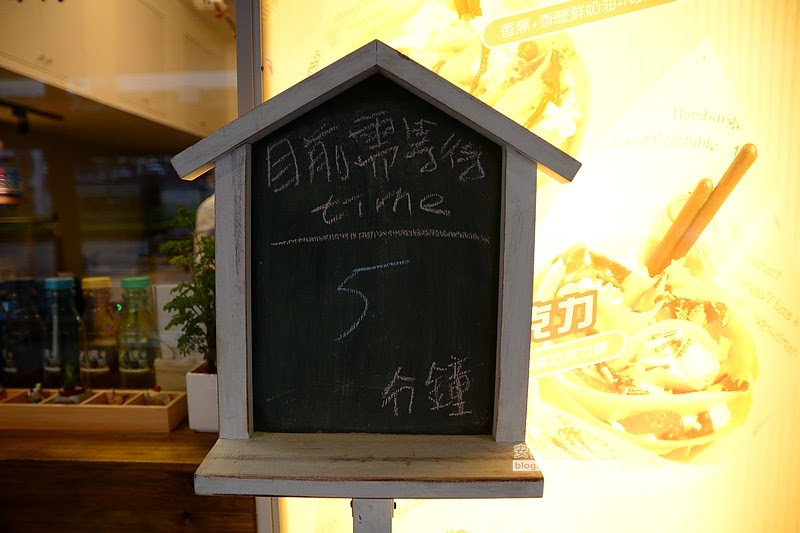 香蕉+香醍鮮奶油+
目前需等待
time
5
分鐘
克力
blog.